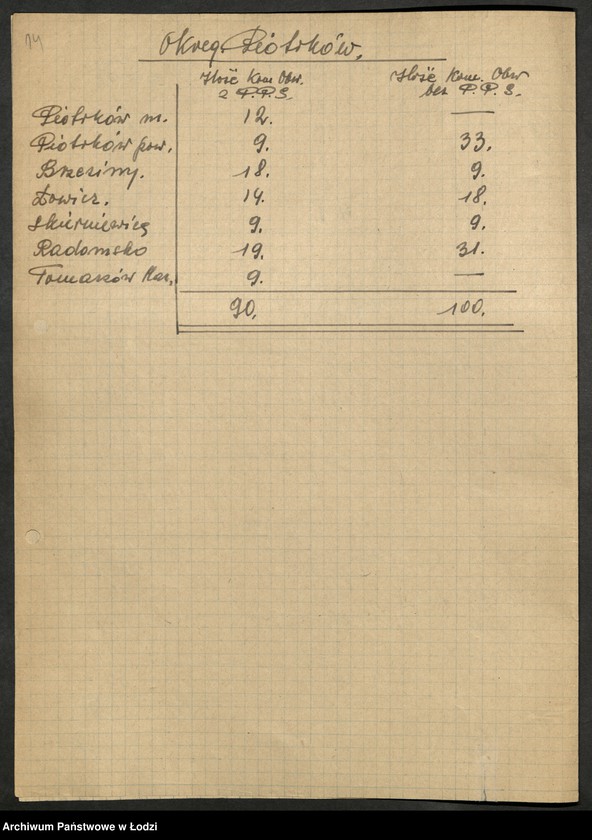 14
Okręg Piotrków.
Ilość Kom Obw. z P.P.S. Ilość Kom. Obw bez P.P.S.
Piotrków m. 12. —
Piotrków pow. 9. 33.
Brzeziny. 18. 9.
Łowicz. 14. 18.
Skierniewice 9. 9.
Radomsko 19. 31.
Tomaszów Maz. 9. —
90. 100.
Archiwum Państwowe w Łodzi